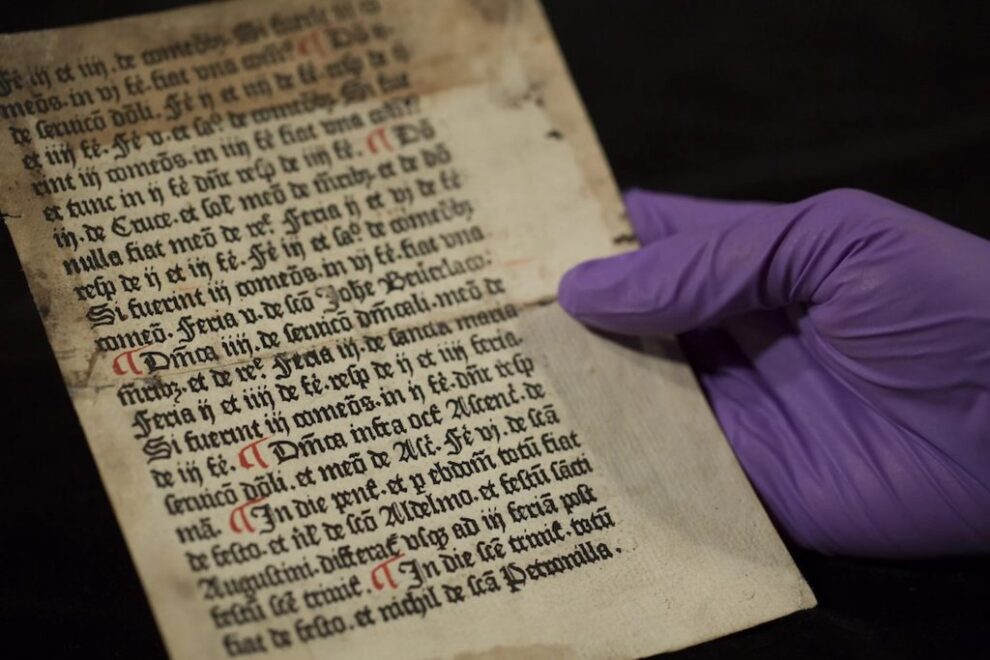 Fé iij et iiij. de comeōbꝫ. Si fuerit iij co
meōs. in vj fé. fiat vna com̄o. ¶ Dō
de seruicō dōli. Fé ij et iiij de fé. resp de ij
et iiij fé. Fé v. et saᵒ. de comeōbꝫ. Si fue
rint iij comeōs. in iij fé fiat vna com̄
et tunc in ij fé dn̄r resp de iij fé. ¶ Dō
iij. de Cruce. et sol meō de m̄ribꝫ. et de dō
nulla fiat meō de reᵉ. Feria ij et vj de fé
resp de ij et iij fé. Fé iij et saᵒ. de comeōbꝫ
Si fuerint iij comeōs. in vj fé. fiat vna
comeō. Feria v. de scō Johē Beuerlaco.
¶ Dm̄ca iiij. de seruicō dm̄cali. meō de
m̄ribꝫ. et de reᵉ. Feria iij. de sancta maria.
Feria ij et iiij de fé. resp de ij et iiij feria.
Si fuerint iij comeōs. in ij fé. dn̄r resp
de iij fé. ¶ Dm̄ca infra oct̄ Ascenc̄. de
seruicō dōli. et meō de Asc̄. Fé vj. de scā
mā. ¶ In die pent̄. et p ebdom̄ totū fiat
de festo. et nil̄ de scō Aldelmo. et festū sācti
Augustini. differat̄ vsqꝫ ad iij feriā post
festū scē trinit̄. ¶ In die scē trinit̄. totū
fiat de festo. et nichil de scā Petronilla.